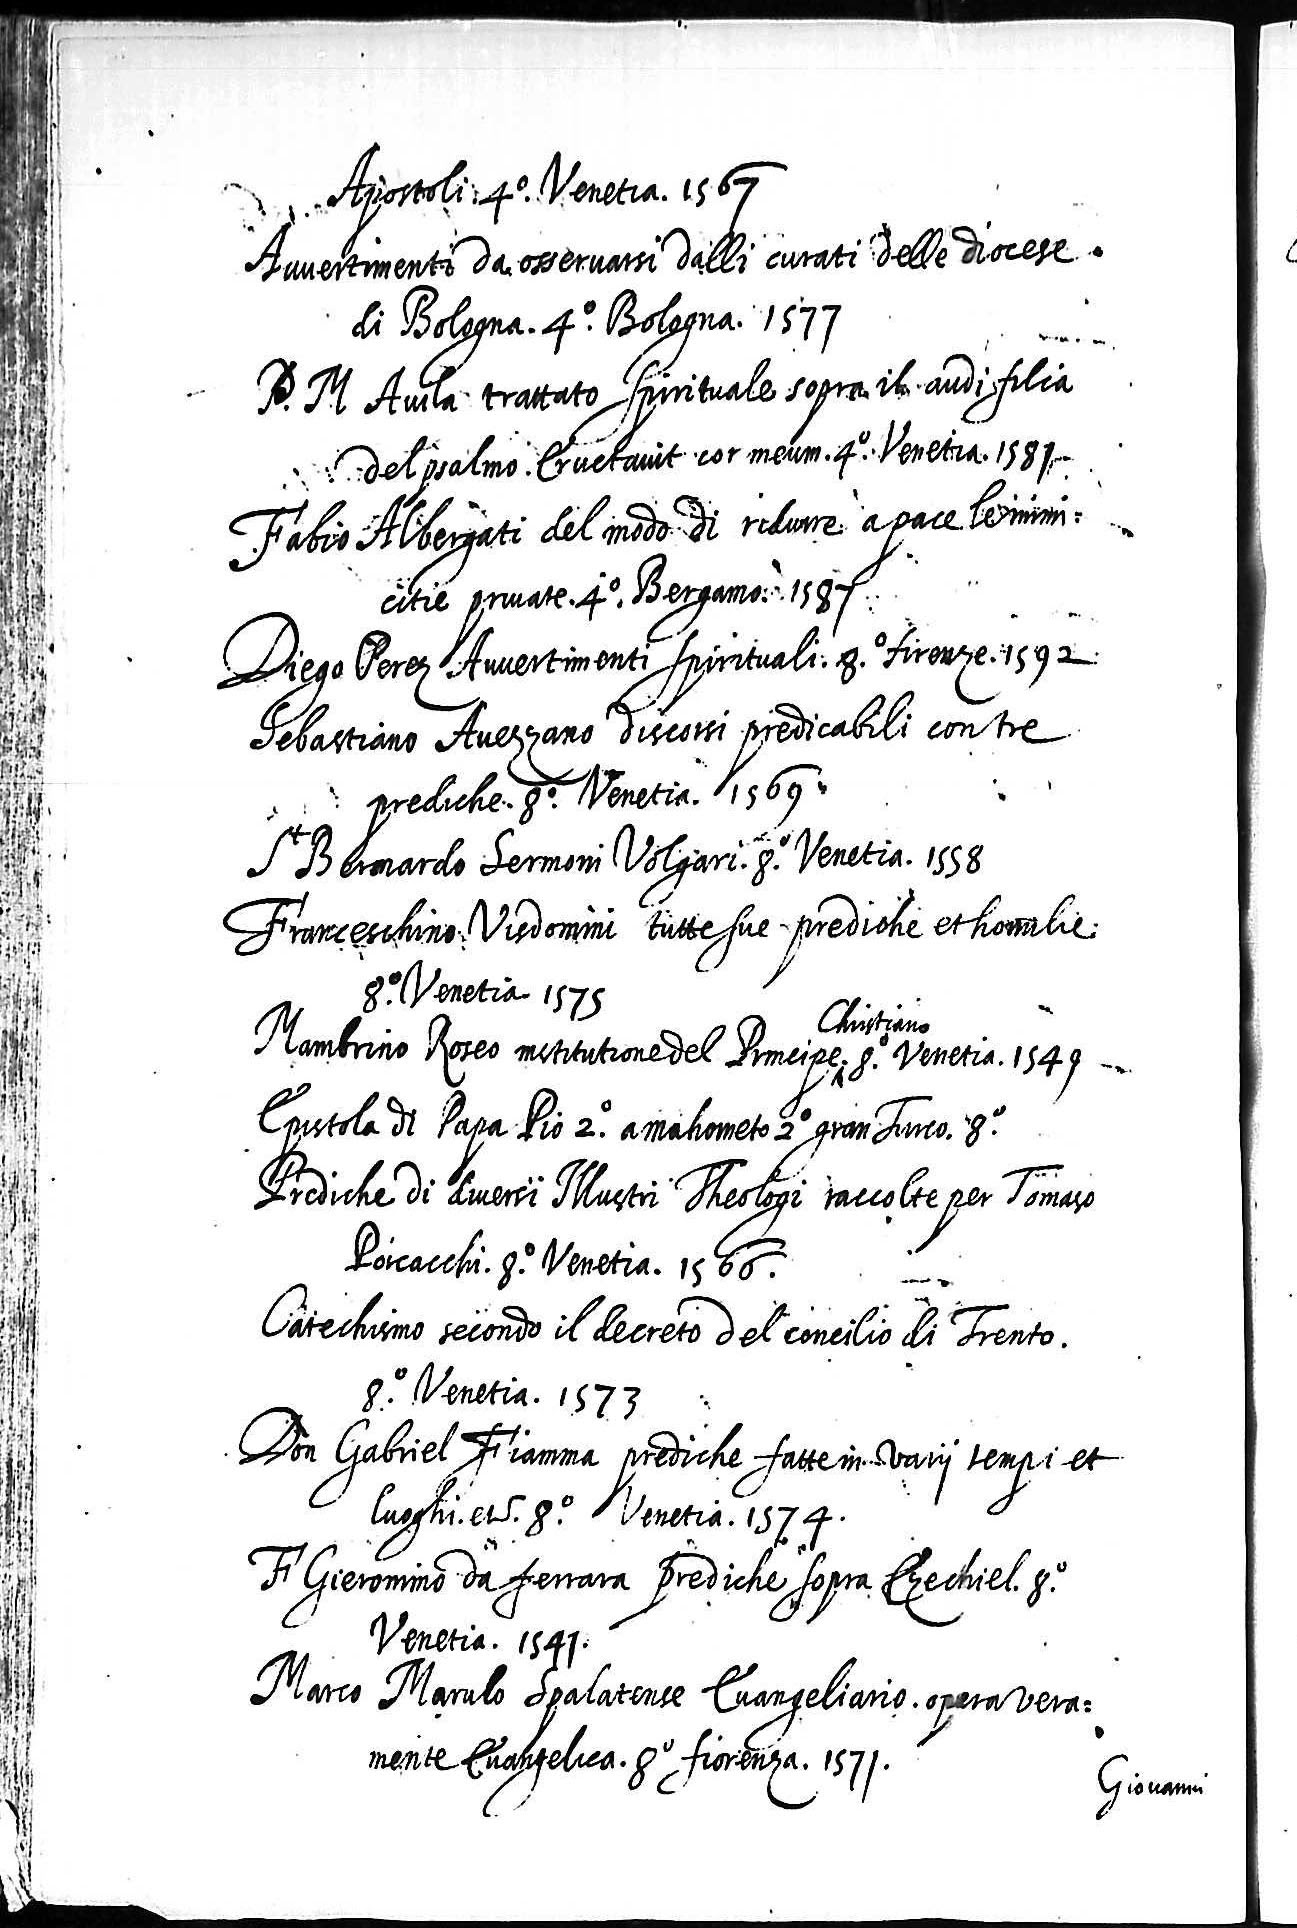 Apostoli. 4º. Venetia. 1567
Auuertimenti da osseruarsi dalli curati delle diocese
di Bologna. 4º. Bologna. 1577
P. M Auila trattato spirituale sopra il audi filia
del psalmo. Eructauit cor meum. 4º. Venetia. 1581
Fabio Albergati del modo di ridurre a pace le inimi=
citie priuate. 4º. Bergamo. 1587
Diego Perez Auuertimenti spirituali. 8.º firenze. 1592
Sebastiano Auezzano discorsi predicabili con tre
prediche. 8º. Venetia. 1569
St Bernardo Sermoni Volgari. 8.º Venetia. 1558
Franceschino Visdomini tutte sue prediche et homilie.
8º. Venetia 1575
Mambrino Roseo institutione del Principe Christiano. 8.º Venetia. 1549
Epistola di Papa Pio 2º. a mahometo 2º gran Turco. 8º.
Prediche di diuersi Illustri Theologi raccolte per Tomaso
Porcacchi. 8.º Venetia. 1566.
Catechismo secondo il decreto del concilio di Trento.
8.º Venetia. 1573
Don Gabriel Fiamma prediche fatte in varij tempi et
luoghi. etc. 8º. Venetia. 1574.
F Gieronimo da ferrara prediche sopra Ezechiel. 8.º
Venetia. 1541.
Marco Marulo Spalatense Euangeliario. opera vera=
mente Euangelica. 8º fiorenza. 1571.
Giouanni